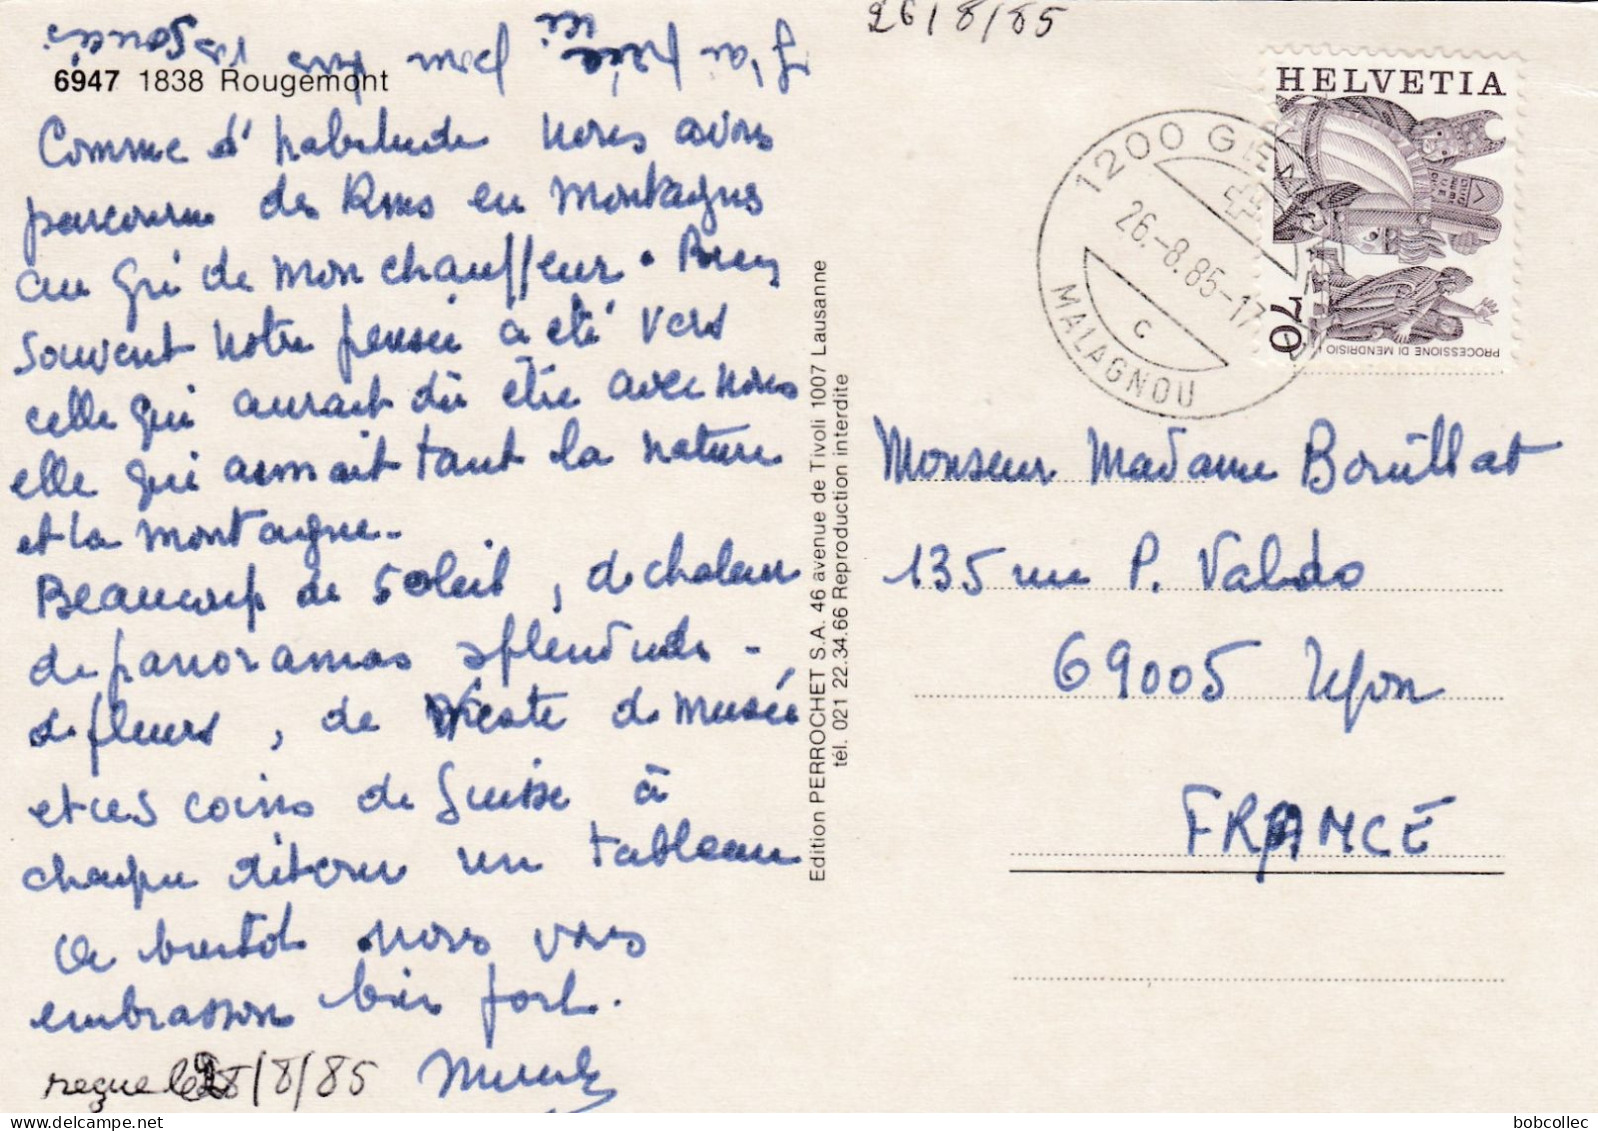 26/8/85
J'ai prié ici pour tous vos soucis
6947 1838 Rougemont
Comme d'habitude nous avons
parcouru des Kms en Montagnes
au gré de mon chauffeur. Bien
souvent notre pensée a été vers
celle qui aurait dû être avec nous
elle qui aimait tant la nature
et la montagne.
Beaucoup de soleil, de chaleur
de panoramas splendides -
de fleurs, de visite de musée
et ces coins de Suisse à
chaque détour un tableau
A bientôt nous vous
embrassons bien fort.
reçue le 28/8/85
Edition PERROCHET S.A. 46 avenue de Tivoli 1007 Lausanne
tél. 021 22.34.66 Reproduction interdite
HELVETIA
70
PROCESSIONE DI MENDRISIO
1200 GENÈVE
26.-8.85-17
C
MALAGNOU
Monsieur Madame Bouillat
135 rue P. Valdo
69005 Lyon
FRANCE
bobcollec